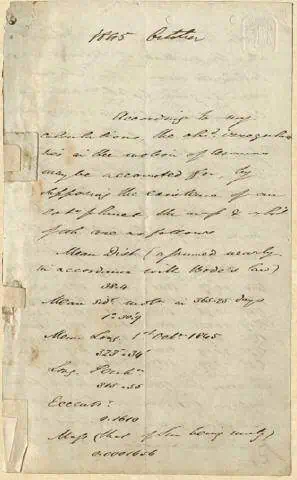 1845 October
According to my
calculations the obsd. irregulari
ties in the motion of Uranus
may be accounted for, by
supposing the existence of an
extr. planet the mass & orbit
of wh. are as follows
Mean Dist. (assumed nearly
in accordance with Bode's law)
38.4
Mean sidl. motn. in 365.25 days
1°.30'.9
Mean Long. 1st Octr. 1845
323°.34'
Long. Perihn.
315.55
Eccentry.
0.1610
Mass (that of Sun being unity)
0.0001656